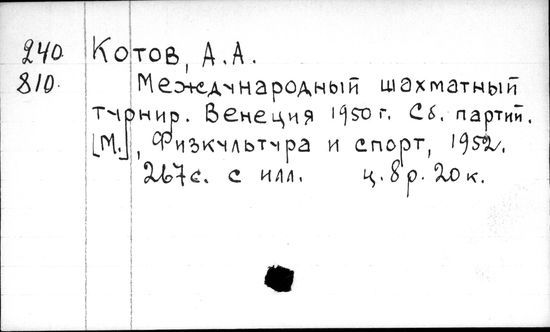 240 Котов, А.А.
810. Международный шахматный
турнир. Венеция 1950 г. Сб. партий.
[М.], Физкультура и спорт, 1952.
267с. с илл. ц. 8 р. 20 к.